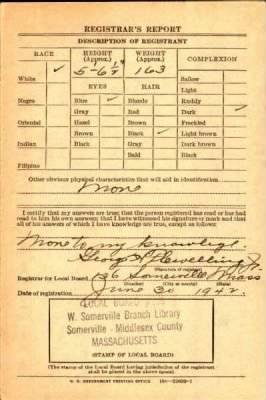 REGISTRAR'S REPORT
DESCRIPTION OF REGISTRANT
RACE HEIGHT (Approx.) WEIGHT (Approx.) COMPLEXION
White ✓ 5-6½ 163 Sallow
EYES HAIR Light
Negro Blue ✓ Blonde Ruddy
Gray Red Dark ✓
Oriental Hazel Brown Freckled
Brown Black ✓ Light brown
Indian Black Gray Dark brown
Bald Black
Filipino
Other obvious physical characteristics that will aid in identification
None
I certify that my answers are true; that the person registered has read or has had
read to him his own answers; that I have witnessed his signature or mark and that
all of his answers of which I have knowledge are true, except as follows:
None to my knowledge.
(Signature of registrar)
Registrar for Local Board 136 Somerville Mass
Date of registration June 30 1942
LOCAL BOARD
W. Somerville Branch Library
Somerville - Middlesex County
MASSACHUSETTS
(STAMP OF LOCAL BOARD)
(The stamp of the Local Board having jurisdiction of the registrant
shall be placed in the above space)
U. S. GOVERNMENT PRINTING OFFICE